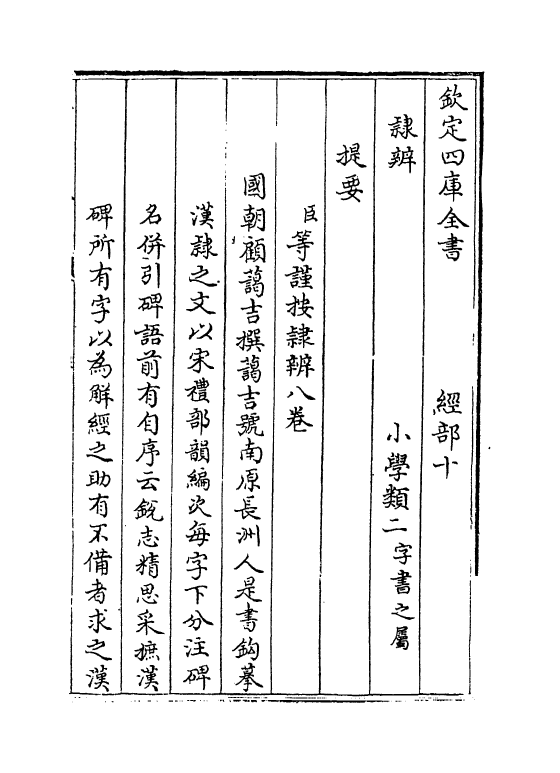 欽定四庫全書　經部十
隸辨　小學類二字書之屬
提要
臣等謹按隸辨八卷
國朝顧藹吉撰藹吉號南原長洲人是書鈎摹
漢隸之文以宋禮部韻編次每字下分注碑
名併引碑語前有自序云銳志精思采摭漢
碑所有字以為解經之助有不備者求之漢